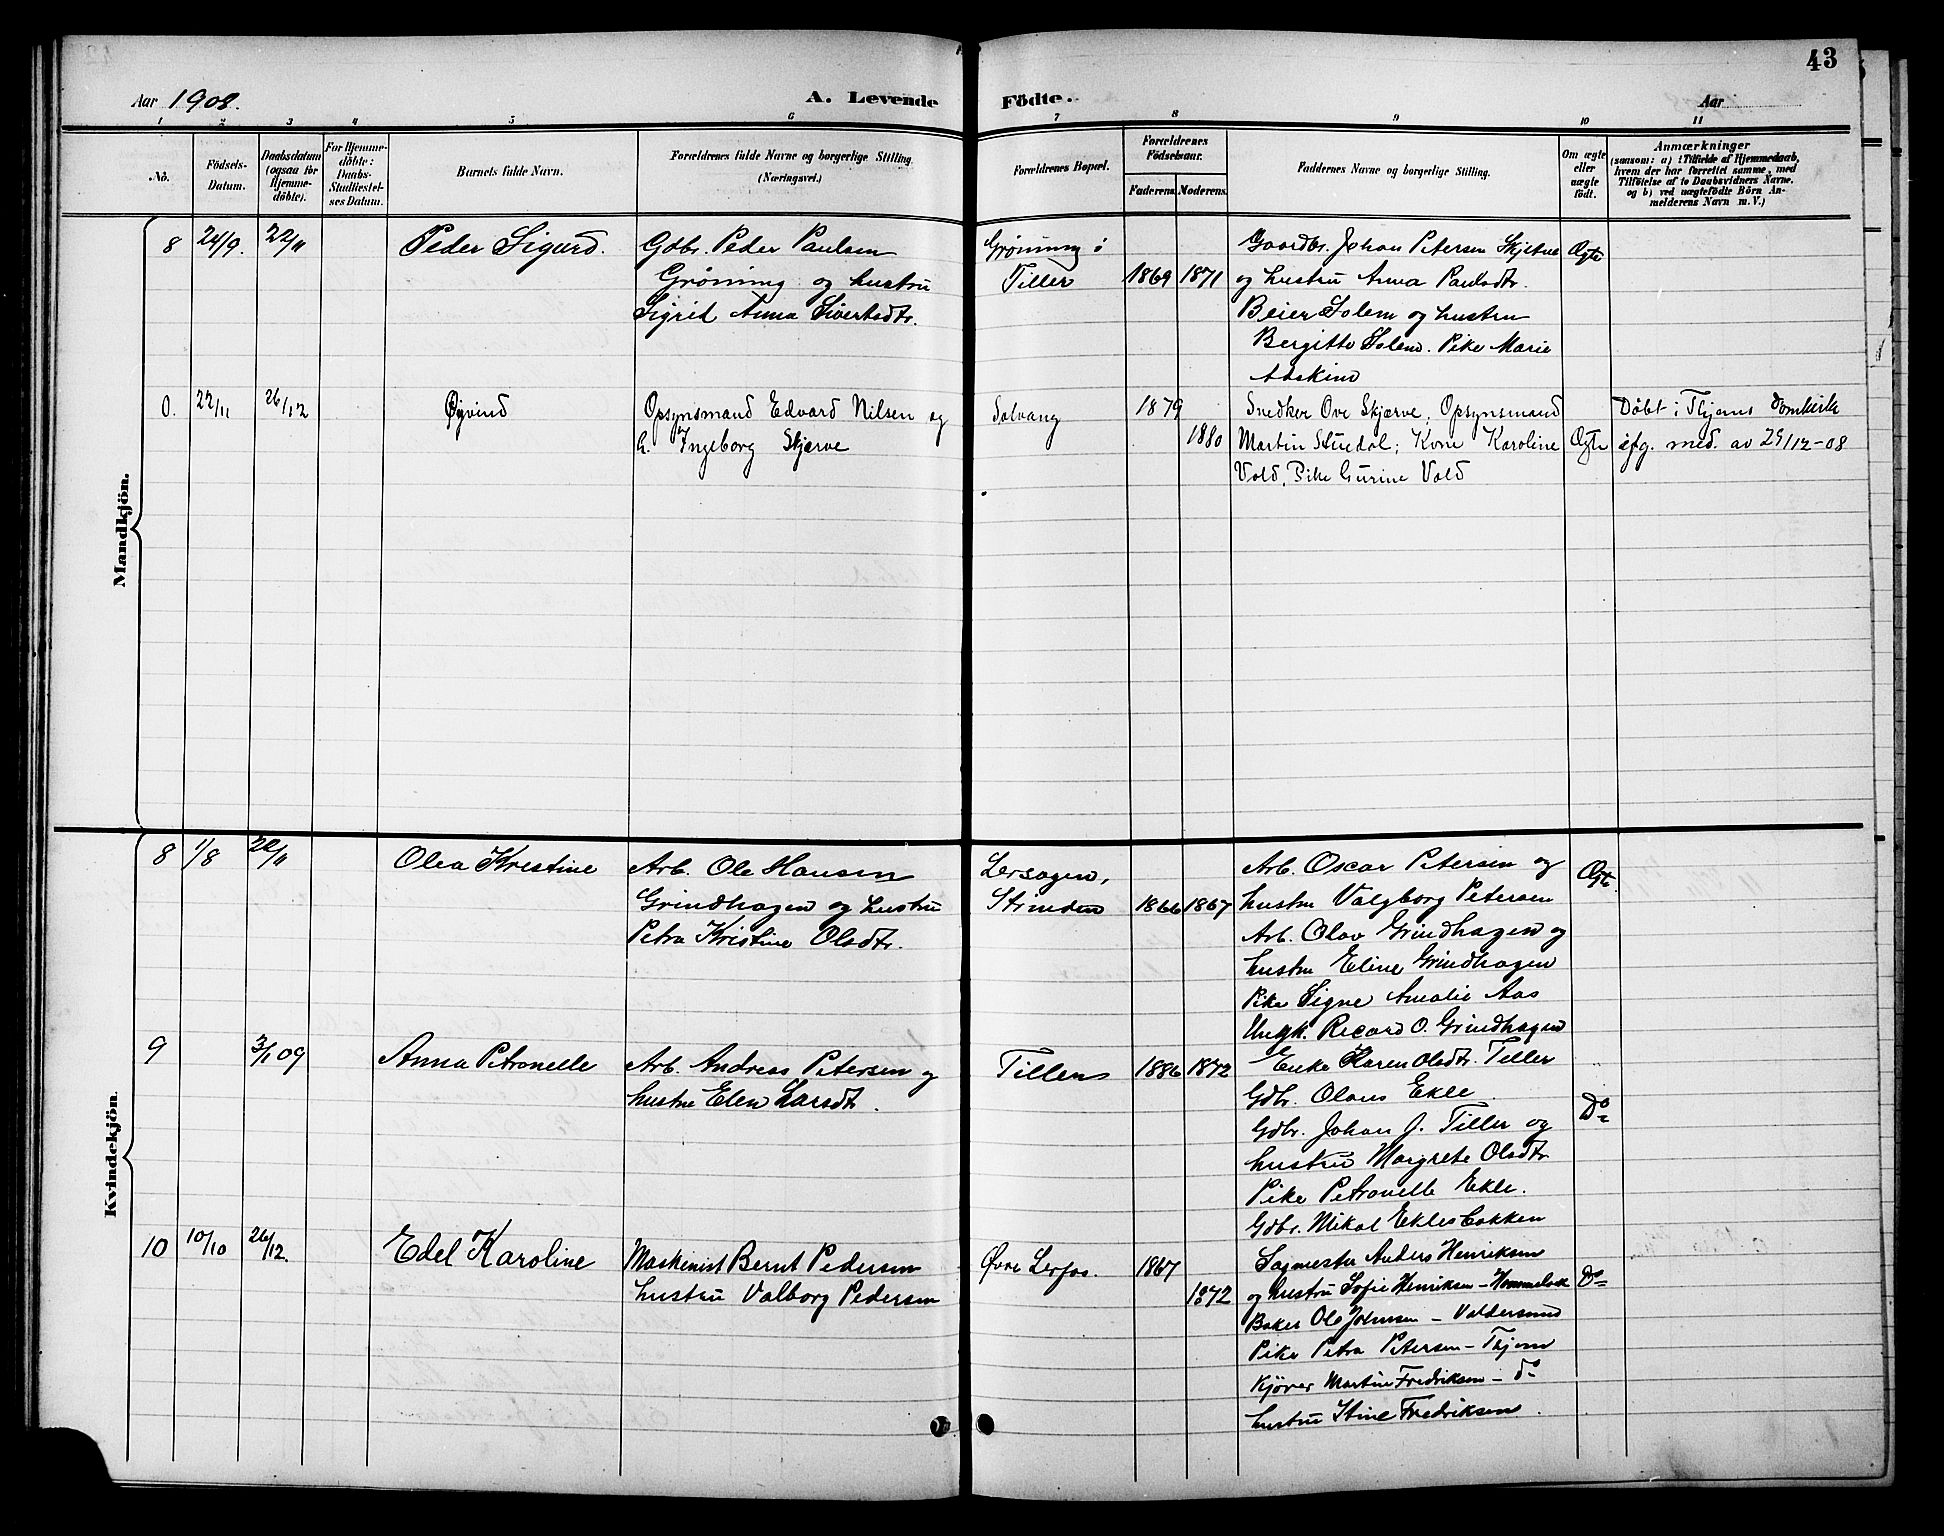 43
Aar 1908.
A. Levende Födte.
Aar
1 2 3 4 5 6 7 8 9 10 11
No.
Födsels-Datum.
Daabsdatum (ogsaa for Hjemme-döbte).
For Hjemme-döbte: Daabs-Stadfæstel-ses Datum.
Barnets fulde Navn.
Forældrenes fulde Navne og borgerlige Stilling.
(Næringsvei.)
Forældrenes Bopæl.
Forældrenes Födselsaar.
Faderens. Moderens.
Faddernes Navne og borgerlige Stilling.
Om ægte eller uægte födt.
Anmærkninger
(saasom: a) i Tilfælde af Hjemmedaab,
hvem der har forrettet samme, med
Tilföielse af to Daabsvidners Navne.
og b) ved uægtefödte Börn An-
melderens Navn m. V.)
Mandkjön.
8 24/9. 22/11 Peder Sigurd. Gdbr. Peder Paulsen
Grøning og hustru
Sigrid Anna Sivertsdtr.
Grøning i
Tiller 1869 1871
Gaardbr. Johan Petersen Skjetne
og hustru Anna Paulsdtr.
Beier Solem og hustru
Bergitte Solem. Pike Marie
Ægte
0. 22/11 26/12 Øyvind Opsynsmand Edvard Nilsen og
h. Ingeborg Skjærve
Solvang 1879
1880
Snedker Ove Skjærve, Opsynsmand
Martin Stuedal; Kone Karoline
Vold, Pike Gurine Vold
Ægte
Döbt i Thjems Domkirke
ifg. med. av 29/12-08
Kvindekjön.
8 1/8 22/11 Olea Kristine Arb. Ole Hansen
Grindhagen og hustru
Petra Kristine Olsdtr.
Lersagen,
Strinden 1866 1867
Arb. Oscar Petersen og
hustru Valgborg Petersen
Arb. Olav Grindhagen og
hustru Eline Grindhagen
Pike Signe Amalie Aas
Ungk. Ricard O. Grindhagen
Ægte.
9 3/1 09 Anna Petronelle Arb. Andreas Petersen og
hustru Elen Larsdtr.
Tiller 1886 1872
Enke Karen Olsdtr. Tiller
Gdbr. Olaus Ekle.
Gdbr. Johan J. Tiller og
hustru Margrete Olsdtr.
Pike Petronelle Ekle.
Gdbr. Mikal Eklesbakken
Do
10 10/10 26/12. Edel Karoline Maskinist Bernt Pedersen
hustru Valborg Pedersen
Øvre Lerfos. 1867
1872
Sagmester Anders Henriksen
og hustru Sofie Henriksen - Hommelvik
Baker Ole Johnsen - Valdersund
Pike Petra Petersen - Thjem
Kjører Martin Fredriksen - do
hustru Stine Fredriksen.
Do